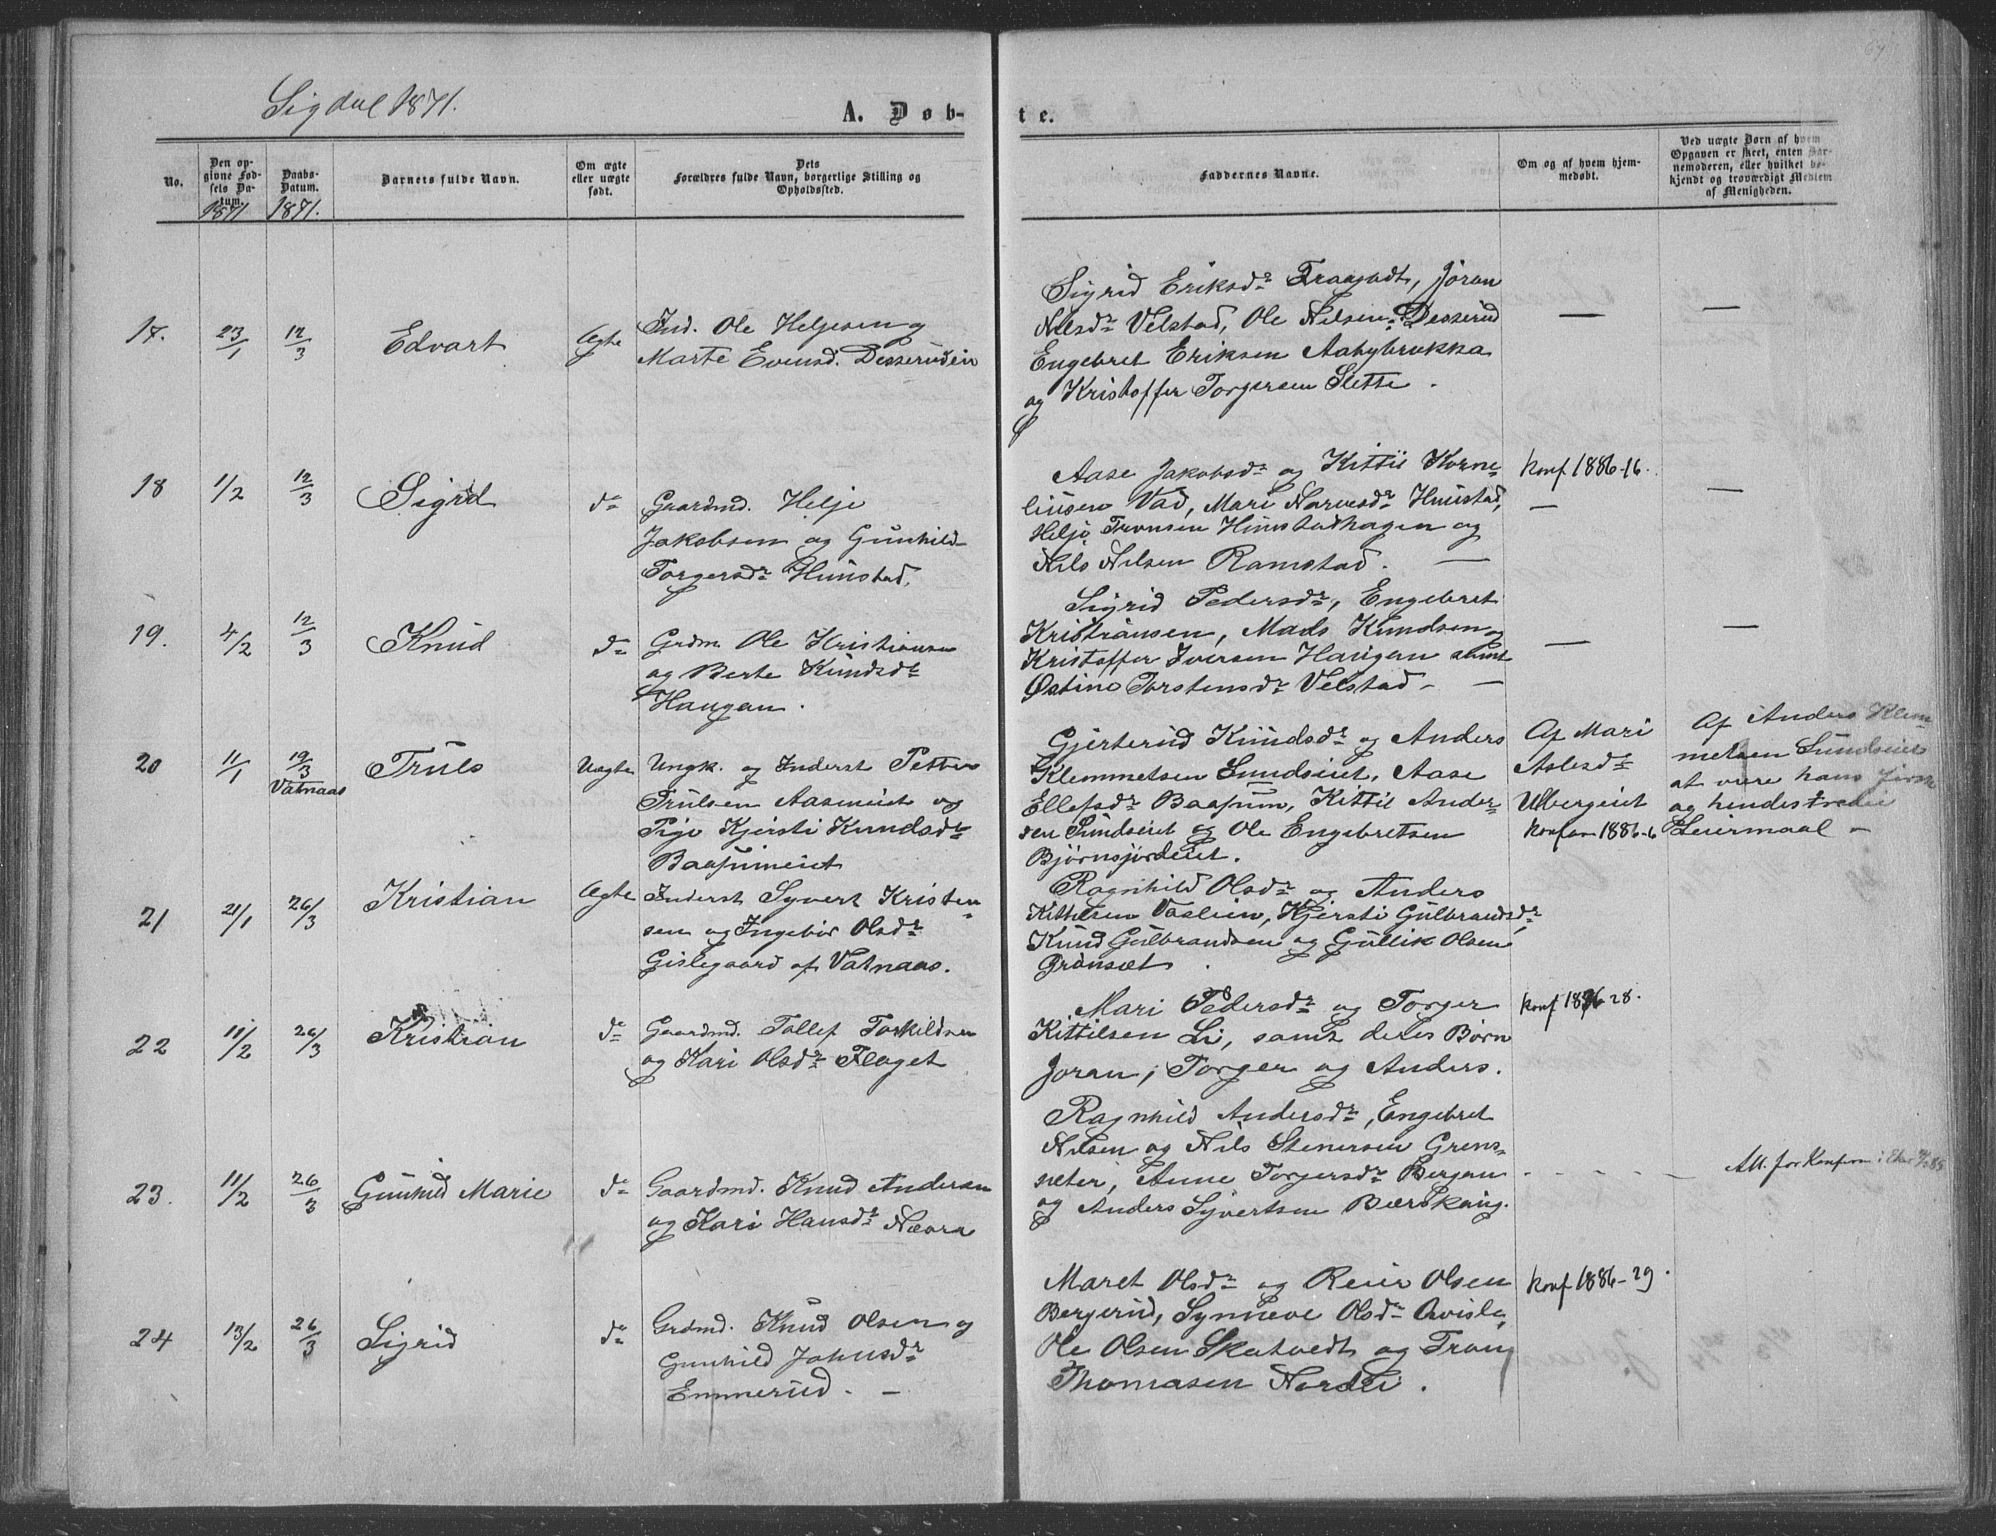 Sigdal 1871.
A. Døb-
te.
No.
Den opgivne Fødsels Datum. 1871
Daabs-Datum. 1871.
Barnets fulde Navn.
Om ægte eller uægte født.
Dets Forældres fulde Navn, borgerlige Stilling og Opholdssted.
Faddernes Navne.
Om og af hvem hjemmedøbt.
Ved uægte Børn af hvem Opgaven er skeet, enten Barnemoderen, eller hvilket bekjendt og troværdigt Medlem af Menigheden.
17. 23/1 12/3 Edvart Ægte
Ind. Ole Helgesen og
Marte Evensd. Desserudein
Sigrid Eriksdr , Jøran
Nilsdr Velstad, Ole Nilsen Desserud
Engebret Eriksen Aabybrukka
og Kristoffer Torgersen Slette.
— —
18 1/2 12/3 Sigrid do
Gaardmd. Helge
Jakobsen og Gunhild
Torgersdr Hunstad.
Aase Jakobsdr og Kittil Korne-
liusen Vad, Mari Narvesdr Hunstad,
Helje Tronsen Hunstadhagen og
Nils Nilsen Ramstad. —
konf 1886-16.
— —
19. 4/2 12/3 Knud do
Grdm. Ole Kristiansen
og Berte Knudsdr
Haugan.
Sigrid Pedersdr, Engebret
Kristiansen, Mads Knudsen og
Kristoffer Iversen Haugan samt
Østine Torstensdr Velstad – —
— —
20 11/1 19/3 Vatnaas Truls Uægte
Ungk. og Inderst Petter
Trulsen Aaseneiet og
Pige Kjersti Knudsdr
Baasumeiet
Gjerterud Knudsdr og Anders
Klemmetsen Sundseiet, Aase
Ellefsdr Baasum, Kittil Ander-
sen Sundseiet og Ole Engebretsen
Bjørnsjordeiet.
Af Mari
Aslesdr
Ulbergeiet
konfom 1886-6
Af Anders Klem-
metsen Sundseiet
at være hans første
og hendes tredie
Leiermaal –
21 21/1 26/3 Kristian Ægte
Inderst Syvert Kristen-
sen og Ingebor Olsdr
Gislegaard af Vatnaas.
Ragnhild Olsdr og Anders
Kittelsen Vaslien, Kjersti Gulbrandsdr,
Knud Gulbrandsen og Gullik Olsen
Grønset.
22 11/2 26/3 Kristian do
Gaardmd. Tollef Torkildsen
og Kari Olsdr Flaget
Mari Pedersdr og Torger
Kittilsen Li, samt deres Børn
Joran, Torger og Anders.
konf 1886-28.
23. 11/2 26/3 Gunhild Marie do
Gaardmd. Knud Andersen
og Kari Hansdr Nævra
Ragnhild Andersdr, Engebret
Nilsen og Nils Stenersen Grens-
sæter, Anne Torgersdr Bergan
og Anders Syvertsen Bærskaug.
Att. for Konfirm i Eker 85
24 13/2 26/3 Sigrid do
Grdmd. Knud Olsen og
Gunhild Johnsdr
Emmerud. –
Maret Olsdr og Reier Olsen
Bergerud, Synneve Olsdr
Ole Olsen Skatvedt og Tron
Thomasen Nordli.
konf 1886-29.